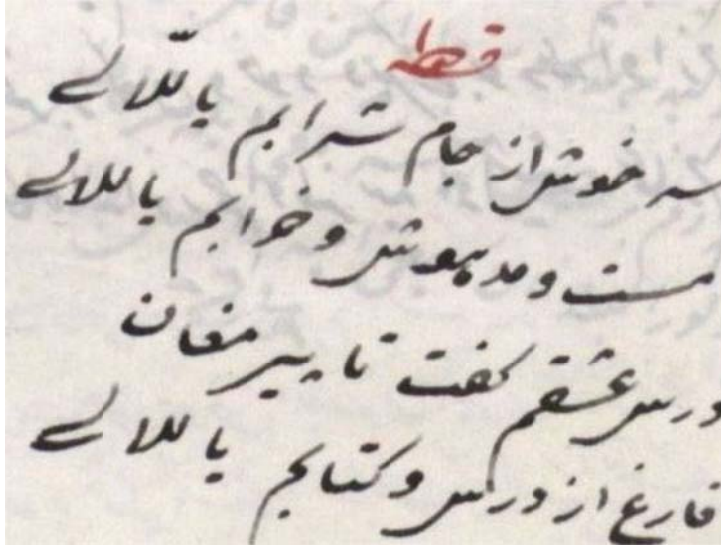 قطعه
سرخوش از جام شرابم یا للّالے
مست و مدهوش و خرابم یا للالے
درس عشقم گفت تا پیر مغان
فارغ از درس و کتابم یا للالے